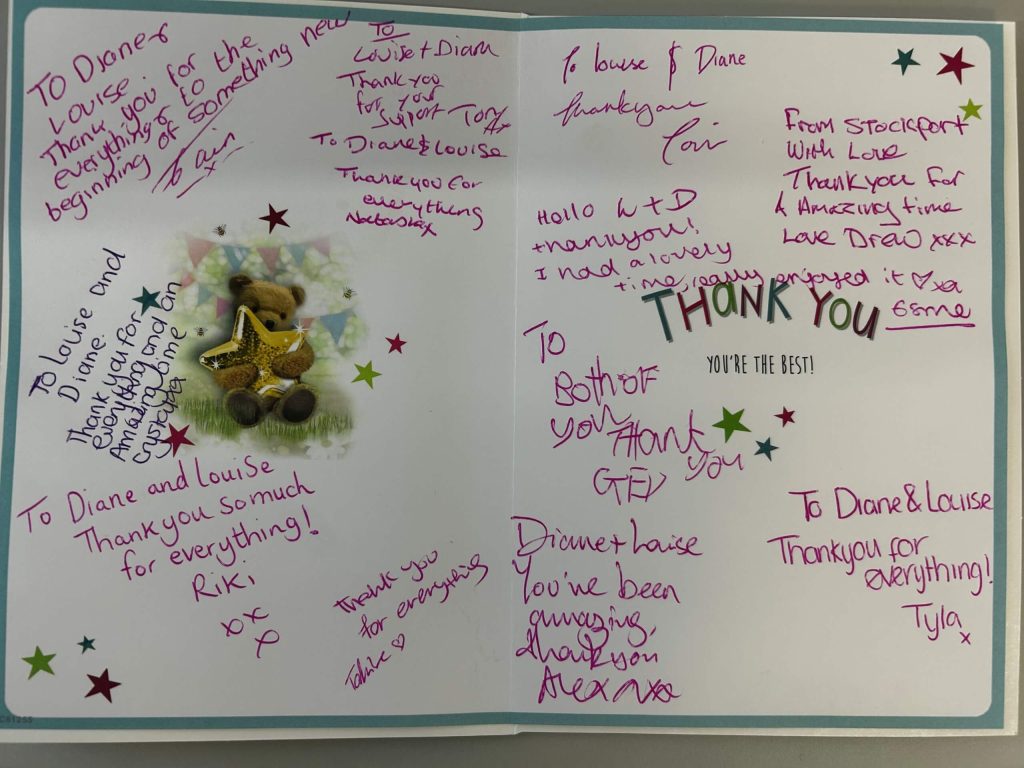 TO Diane &
LOUISE.
Thank you for the
everything & to
beginning of something new
TO
Louise + Diane
Thank you
for your
support Tony
x
To Diane & Louise
Thank you for
everything
Natasha x
To Louise and
Diane
Thank you for
everything and an
Amazing time
Crystyba
To Diane and Louise
Thank you so much
for everything!
Riki
xx
x
Thank you
for everything
To Louise & Diane
Thankyou
From Stockport
With Love
Thank you for
A Amazing time
Love Drew xxx
Hello L + D
thankyou!
I had a lovely
time, really enjoyed it ♡ xx
Esme
THANK YOU
YOU'RE THE BEST!
TO
BOTH OF
you THANK
you
GED
Diane + Louise
You've been
amazing,
thankyou
Alex xx
To Diane & Louise
Thankyou for
everything!
Tyla
x